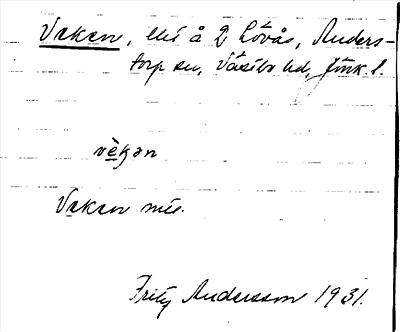 Vakan, ene å 2 Lövås, Anders-
torp sn, Västbo hd, Jönk. l.
vèkan
Vakan mse.
Fritz Andersson 1931.